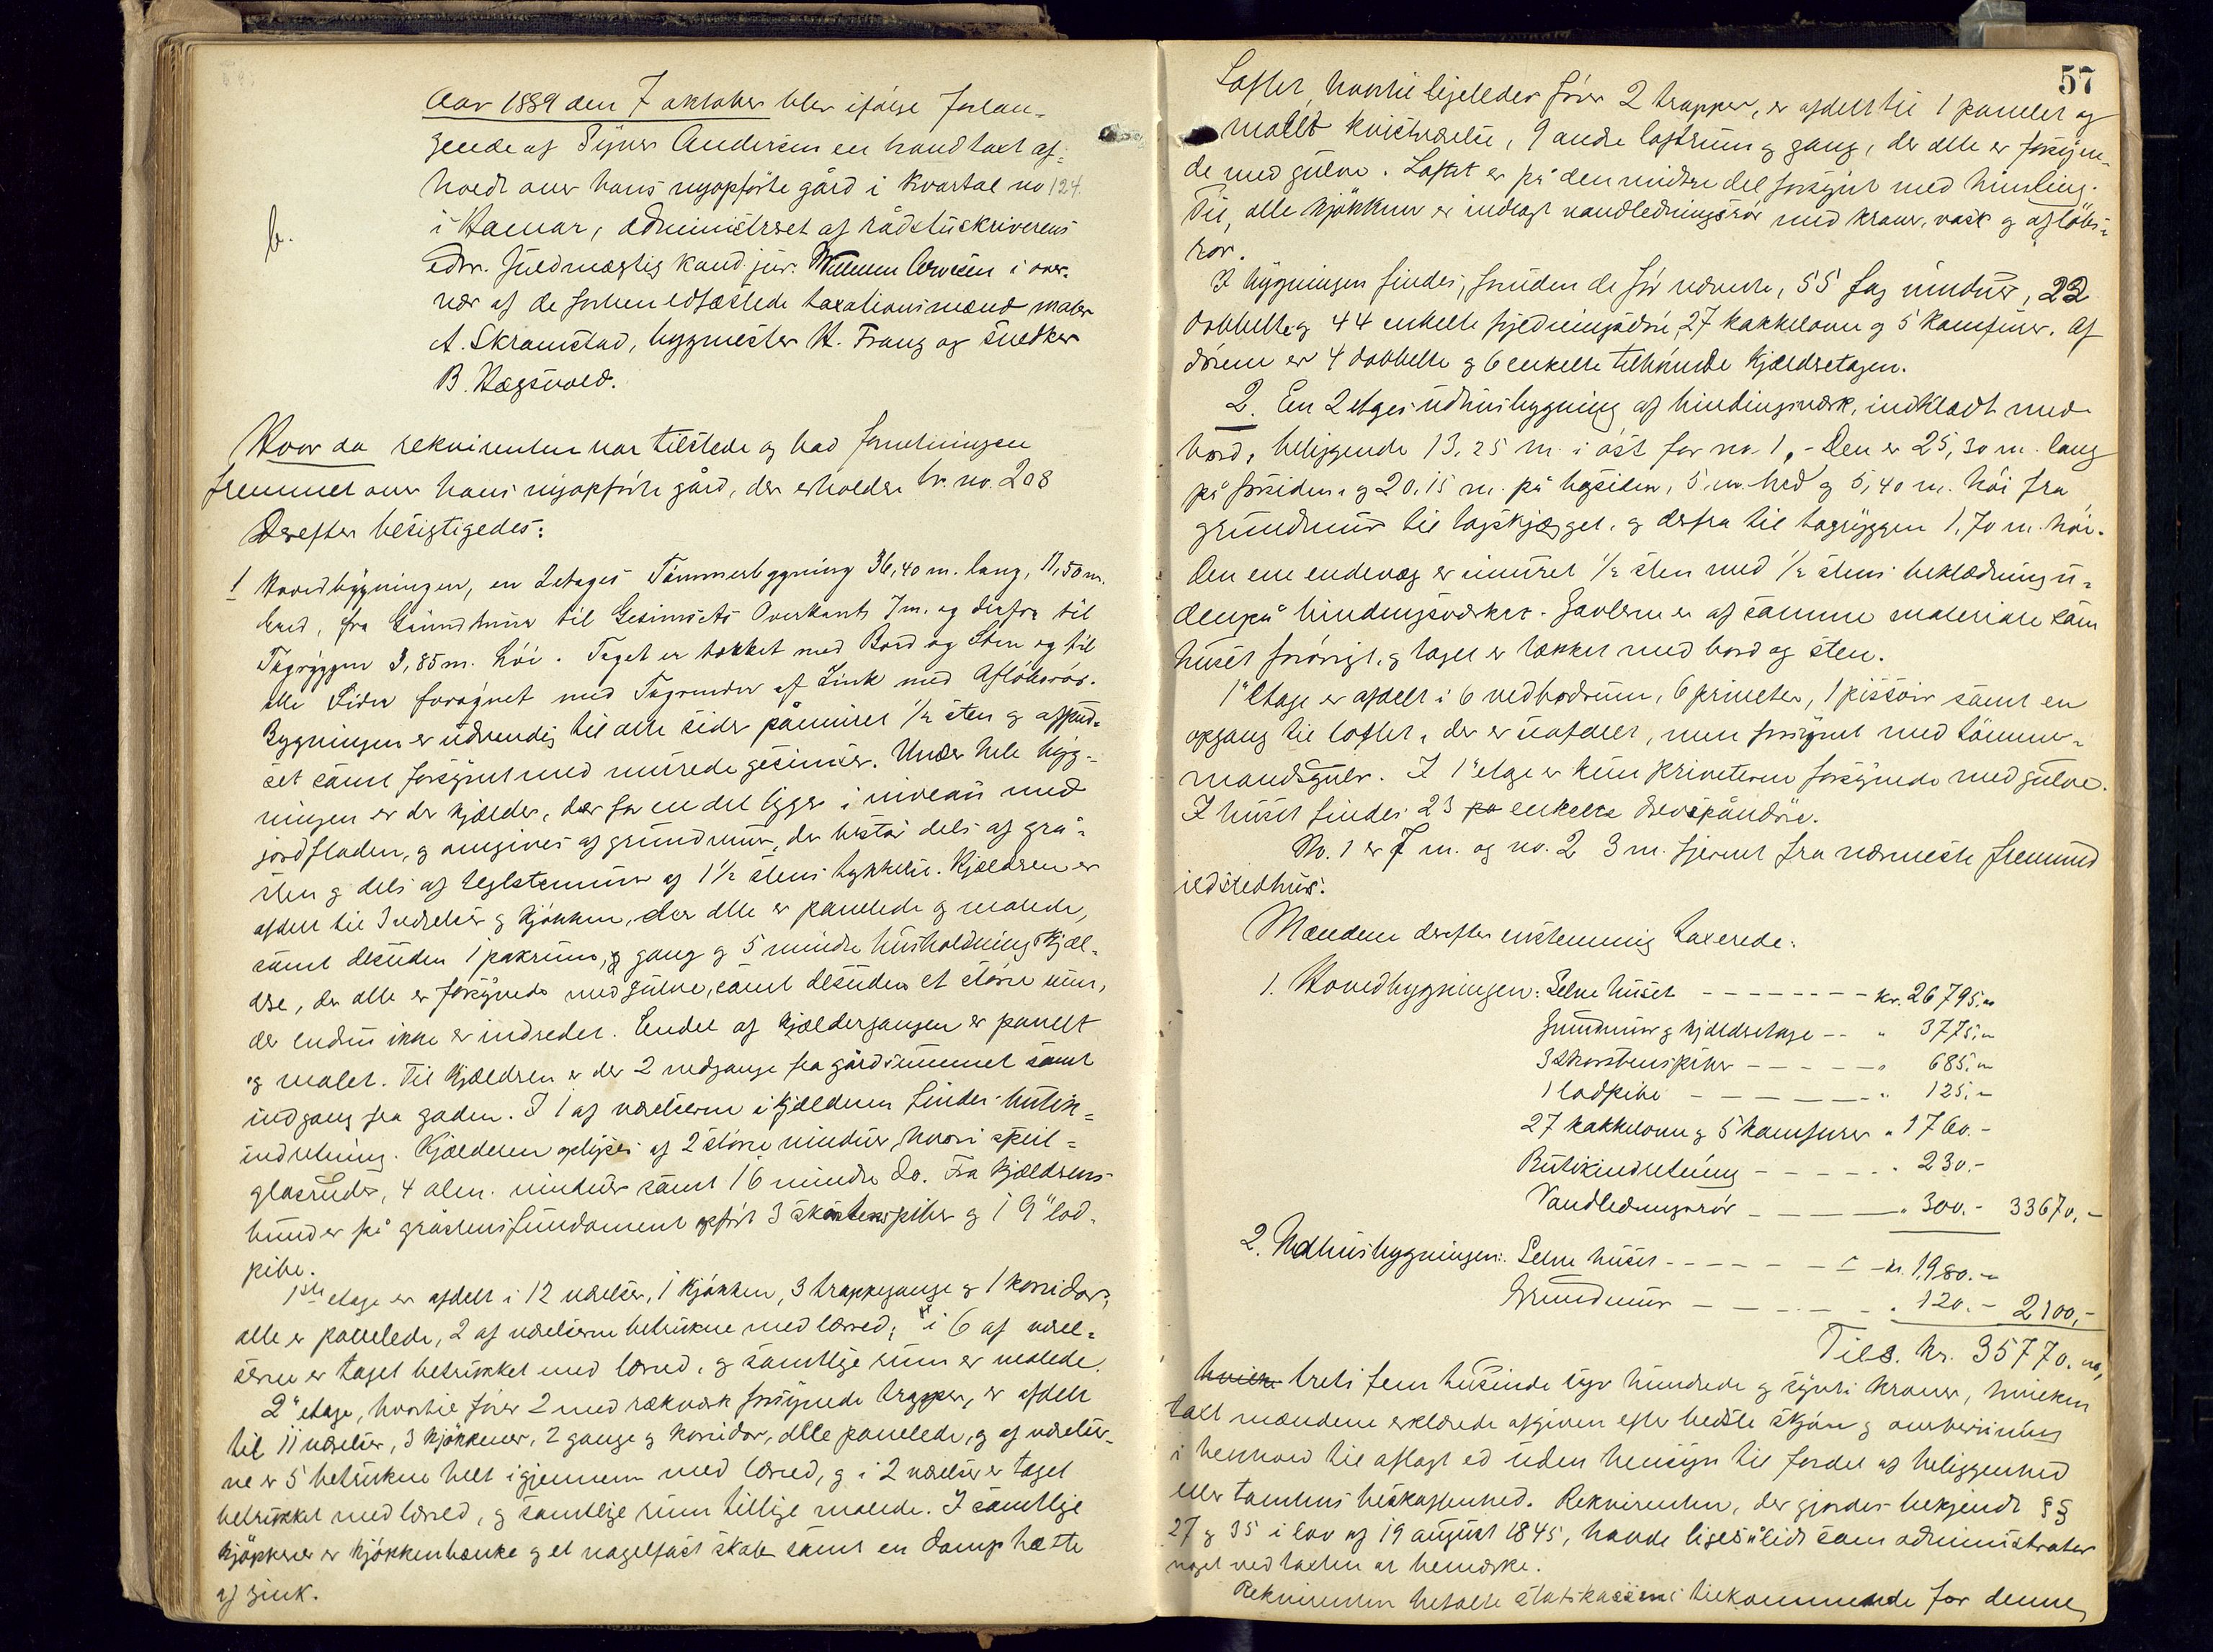 Aar 1889 den 7 oktober blev ifölge forlan-
gende af Syver Andersen en brandtaxt af-
holdt over hans nyopförte gård i kvartal no 124
i Hamar, administreret af rådstuskriverens
edsv. fuldmægtig kand. jur. Wilhelm i over-
vær af de forhen edfæstede taxationsmænd maler
A. Skramstad, bygmester H. Frang og snedker
B. Hegsvold.
b.
Hvor da rekvirenten var tilstede og bad forretningen
fremmet over hans nyopförte gård, der erholder br. no. 208
Derefter besigtigedes:
1 Hovedbygningen, en 2etages Tömmerbygning 36,40 m. lang, 11,50 m.
bred, fra Grundmur til Gesimsets Overkant 7 m. og derfra til
Tagryggen 3,85 m. höi. Taget er tækket med Bord og Sten og til
alle Sider forsynet med Tagrender af Zink med Aflöbsrör.
Bygningen er udvendig til alle sider påmuret 1/2 sten og afpud-
set samt forsynet med murede gesimser. Under hele byg-
ningen er der kjælder, der for en del ligger i niveau med
jordfladen, og omgives af grundmur, der består dels af grå-
sten og dels af teglstensmur af 1 1/2 stens tykkelse. Kjælderen er
afdelt til 3 værelser og kjökken, der alle er panelede og malede,
samt desuden 1 pakrum, og gang og 5 mindre husholdningskjæl-
dre, der alle er forsynede med gulve, samt desuden et större rum,
der endnu ikke er indredet. Endel af kjældergangen er panelt
og malet. Til kjælderen er der 2 nedgange fra gårdsrummet samt
indgang fra gaden. I 1 af værelserne i kjælderen findes butik-
indretning. Kjælderen oplyses af 2 större vinduer, hvori speil-
glasruder, 4 alm. vinduer samt 16 mindre do. Fra kjælderens
bund er på gråstensfundament opfört 3 skorstenspiber og 1 9" lod-
pibe.
1ste etage er afdelt i 12 værelser, 1 kjökken, 3 trappegange og 1 korridor,
alle er panelede, 2 af værelserne betrukne med lærred, i 6 af værel-
serne er taget betrukket med lærred, og samtlige rum er malede.
2" etage, hvortil förer 2 med rækværk forsynede trapper, er afdelt
til 11 værelser, 3 kjökkener, 2 gange og korridor, alle panelede, og af værelser-
ne er 5 betrukne helt igjennem med lærred, og i 2 værelser er taget
betrukket med lærred, og samtlige rum tillige malede. I samtlige
kjökkener er kjökkenbænke og et nagelfast skab samt en damphætte
af zink.
57
Loftet, hvortil ligeledes förer 2 trapper, er afdelt til 1 panelet og
malet kvistværelse, 9 andre loftsrum og gang, der alle er forsyne-
de med gulve. Loftet er på den midtre del forsynet med himling.
Til alle kjökkener er indlagt vandledningsrör med kraner, vask og aflöbs-
rör.
I bygningen findes, foruden de för nævnte, 55 fag vinduer, 22
dobbelte og 44 enkelte fyldningsdöre, 27 kakkelovne og 5 kamfurer. Af
dörene er 4 dobbelte og 6 enkelte tilhörende kjælderetagen.
2. En 2 etages udhusbygning af bindingsværk, indklædt med
bord, beliggende 13,25 m. i öst for no. 1. - Den er 25,30 m. lang
på forsiden og 20,15 m. på bagsiden, 5 m. bred og 5,40 m. höi fra
grundmur til tagskjægget, og derfra til tagryggen 1,70 m. höi.
Den ene endevæg er inmuret 1/2 sten med 1/2 stens beklædning u-
denpå bindingsværket. Gavlerne er af samme materiale som
huset forövrigt, og taget er tækket med bord og sten.
1" etage er afdelt i 6 vedbodrum, 6 priveter, 1 pissoir samt en
opgang til loftet, der er uafdelt, men forsynet med tömmer-
mandsgulv. I 1" etage er kun priveterne forsynede med gulve.
I huset findes 23 enkelte dörre.
No. 1 er 7 m. og no. 2 3 m. fjernet fra nærmeste fremmed
ildstedhus.
Mændene derefter enstemmig taxerede:
1. Hovedbygningen: Selve huset - - - - - - - - kr. 26795.-
Grundmur og kjælderetage - - " 3775.-
3 skorstenspiber - - - - - " 685.-
1 lodpibe - - - - - - - " 125.-
27 kakkelovne og 5 kamfurer " 1760.-
Butikindretning - - - - - " 230.-
Vandledningsrör - - - - - " 300.- 33670,-
2. Udhusbygningen: Selve huset - - - - - - - kr. 1980.-
Grundmur - - - - - - " 120.- 2100,-
Tils. kr. 35770.00,
hvilk. treti fem tusinde syv hundrede og sytti kroner, hvilken
taxt mændene erklærede afgiven efter bedste skjön og overbevisning
i henhold til aflagt ed uden hensyn til fordel af beliggenhed
eller tomtens beskaffenhed. Rekvirenten, der gjordes bekjendt §§
27 og 35 i lov af 19 august 1845, havde ligesålidt som administrator
noget ved taxten at bemærke.
Rekvirenten betalte statskassens tilkommende for denne